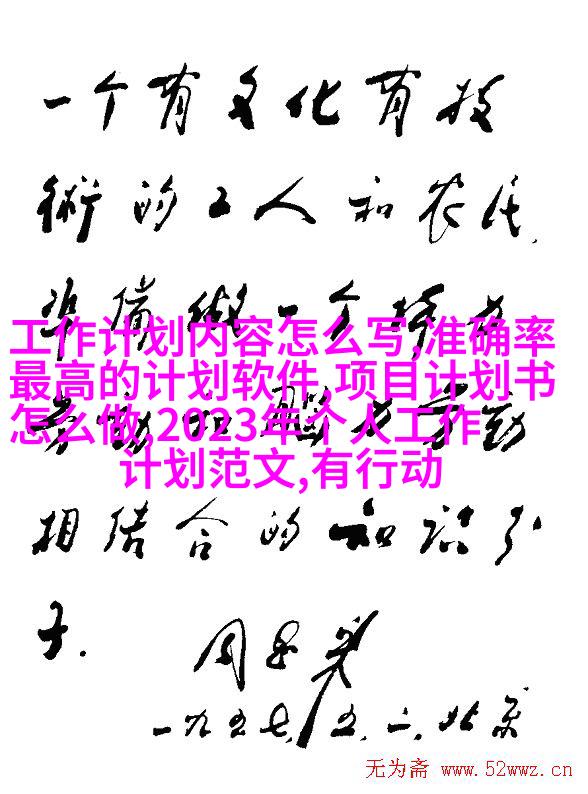 一个有文化有技
術的工人和农民,
備做一个
工作计划内容怎么写,准确率
最高的计划软件,项目计划书
怎么做,2023年个人工作
计划范文,有行动
劳动
相结合的知识分
子.
周恩来
一九五七,五.一,北京
无为斋 www.52wwz.cn